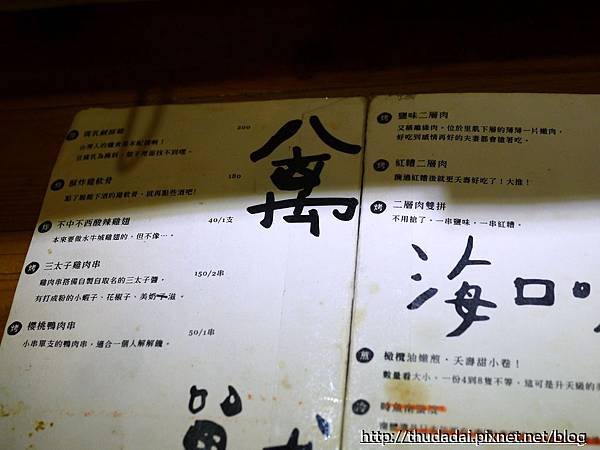 腐乳鹹酥雞 200
台灣人的雞食基本配備啊!
豆腐乳為醃料,整本裡面找不到喔。
酥炸雞軟骨 180
點了酸酸下酒的雞軟骨,就再點些酒吧!
炸 不中不西酸辣雞翅 40/1支
本來要做水牛城雞翅的,但不像…。
烤 三太子雞肉串 150/2串
雞肉串搭備自製自取名的三太子醬,
有打成粉的小蝦子、花椒子、美奶子滋。
烤 櫻桃鴨肉串 50/1串
小串單支的鴨肉串,適合一個人解解饞。
八萬
烤 鹽味二層肉
又稱離緣肉,位於里肌下層的薄薄一片嫩肉,
好吃到感情再好的夫妻都會搶著吃。
烤 紅糟二層肉
醃過紅糟後就更夭壽好吃了!大推!
烤 二層肉雙拼
不用搶了,一串鹽味,一串紅糟。
海口
煎 橄欖油嫩煎,夭壽甜小卷!
數量看大小,一份4到8隻不等,這可是升天級的
冷
http://thudadai.pixnet.net/blog